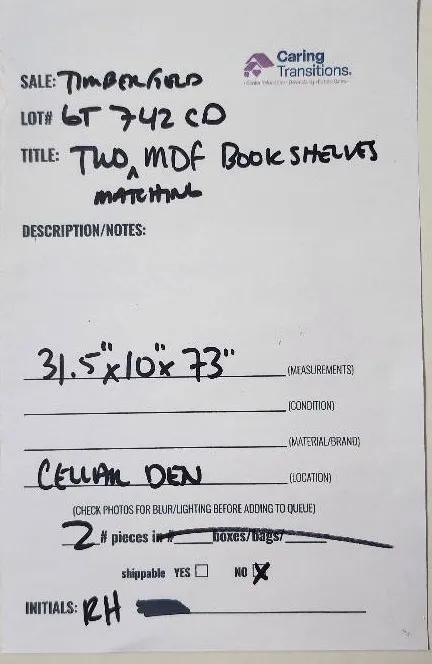 Caring
Transitions.
SALE: TIMBERFIELD
LOT# 6T 742 CD
TITLE: TWO ^ MDF BOOKSHELVES
MATCHING
DESCRIPTION/NOTES:
31.5" x 10" x 73" (MEASUREMENTS)
(CONDITION)
(MATERIAL/BRAND)
CELLAR DEN (LOCATION)
(CHECK PHOTOS FOR BLUR/LIGHTING BEFORE ADDING TO QUEUE)
2 # pieces in # boxes/bags/
shippable YES NO X
INITIALS: RH